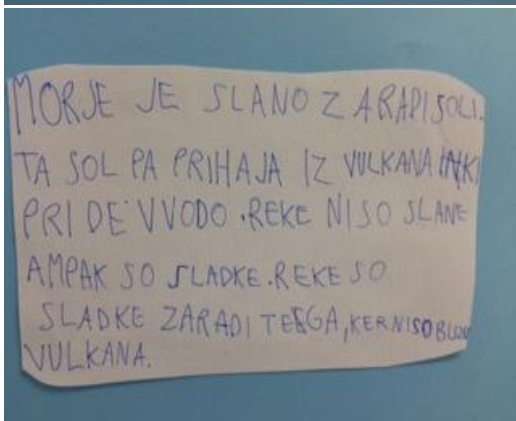 MORJE JE SLANO ZARADI SOLI.
TA SOL PA PRIHAJA IZ VULKANA IN KI
PRIDE V VODO. REKE NISO SLANE
AMPAK SO SLADKE. REKE SO
SLADKE ZARADI TEGA, KER NISO BLIZU
VULKANA.